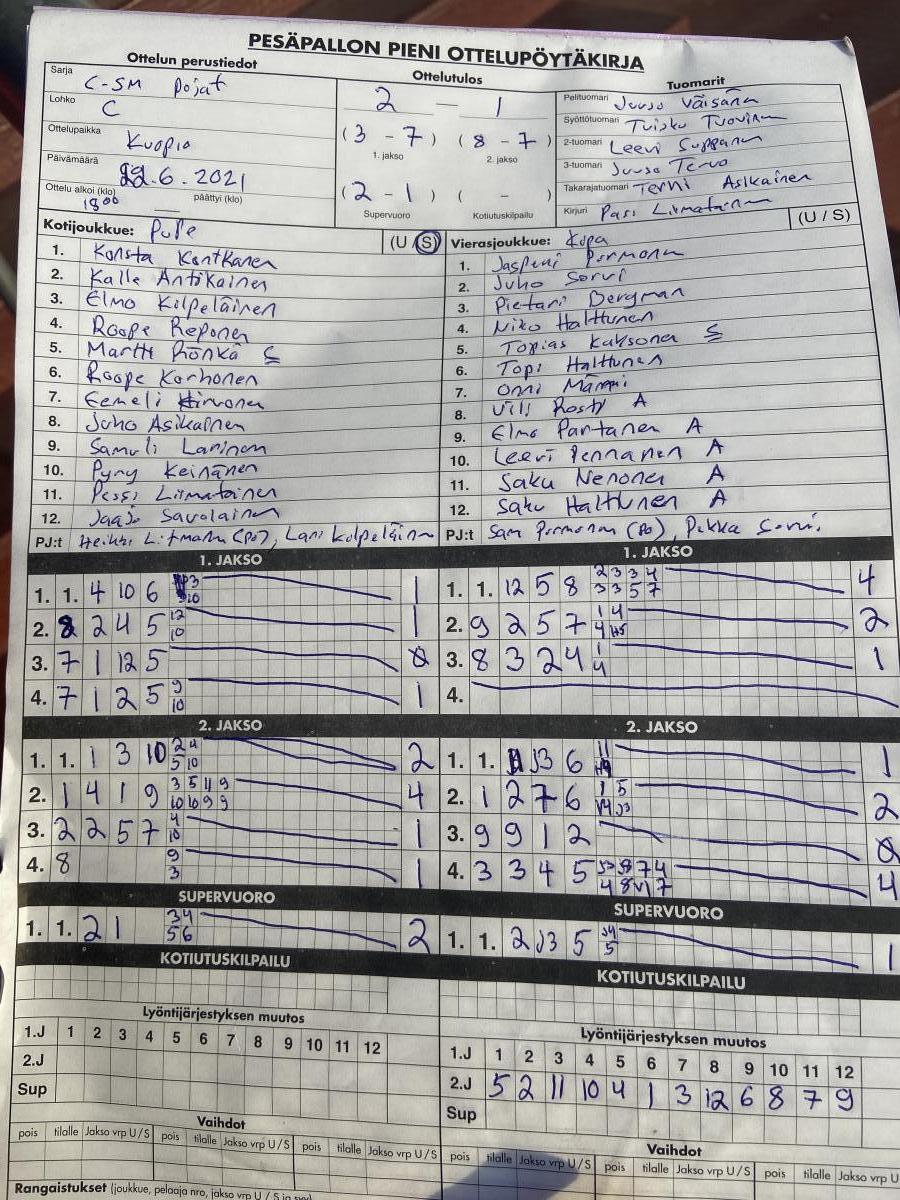 PESÄPALLON PIENI OTTELUPÖYTÄKIRJA
Ottelun perustiedot
Sarja C-SM Pojat
Lohko C
Ottelupaikka Kuopio
Päivämäärä 22.6.2021
Ottelu alkoi (klo) 18⁰⁰ päättyi (klo)
Ottelutulos
2 — 1
(3 - 7) (8 - 7)
1. jakso 2. jakso
(2 - 1) ( - )
Supervuoro Kotiutuskilpailu
Tuomarit
Pelituomari Juuso Väisänen
Syöttötuomari Tuisku Tuovinen
2-tuomari Leevi Suppanen
3-tuomari Juuso Tervo
Takarajatuomari Temi Asikainen
Kirjuri Pasi Liimatainen
Kotijoukkue: PuPe (U / S)
1. Konsta Kontkanen
2. Kalle Antikainen
3. Elmo Kilpeläinen
4. Roope Reponen
5. Martti Rönkä S
6. Roope Korhonen
7. Eemeli Hirvonen
8. Juho Asikainen
9. Samuli Laninen
10. Pyry Keinänen
11. Pessi Liimatainen
12. Jaajo Savolainen
PJ:t Heikki (PJ), Lari Kilpeläinen
Vierasjoukkue: Kopa (U / S)
1. Jasperi Pormonen
2. Juho Sorvi
3. Pietari Bergman
4. Niko Halttunen
5. Topias Kuksonen S
6. Topi Halttunen
7. Onni
8. Vili Rosti A
9. Elmo Partanen A
10. Leevi Pennanen A
11. Saku Nenonen A
12. Saku Halttunen A
PJ:t Sam Pormonen (PJ), Pekka Sorvi
1. JAKSO
1. 1. 4 10 6 1
2. 8 2 4 5 12 10 1
3. 7 1 12 5 0
4. 7 1 2 5 9 10 1
1. JAKSO
1. 1. 12 5 8 2 3 3 4 3 3 5 7 4
2. 9 2 5 7 1 4 2
3. 8 3 2 4 1 4 1
4.
2. JAKSO
1. 1. 1 3 10 2 4 5 10 2
2. 1 4 1 9 3 5 11 9 10 10 9 9 4
3. 2 2 5 7 4 10 1
4. 8 9 3 1
2. JAKSO
1. 1. J3 6 11 1
2. 1 2 7 6 1 5 2
3. 9 9 1 2 0
4. 3 3 4 5 4
SUPERVUORO
1. 1. 2 1 3 4 5 6 2
SUPERVUORO
1. 1. 2 J3 5 J4 5 1
KOTIUTUSKILPAILU
KOTIUTUSKILPAILU
Lyöntijärjestyksen muutos
1.J 1 2 3 4 5 6 7 8 9 10 11 12
2.J
Sup
Lyöntijärjestyksen muutos
1.J 1 2 3 4 5 6 7 8 9 10 11 12
2.J 5 2 11 10 4 1 3 12 6 8 7 9
Sup
Vaihdot
pois tilalle Jakso vrp U / S pois tilalle Jakso vrp U / S pois tilalle Jakso vrp U / S
Vaihdot
pois tilalle Jakso vrp U / S pois tilalle Jakso vrp U / S pois tilalle Jakso vrp U
Rangaistukset (joukkue, pelaaja nro, jakso vrp U / S ja syy)